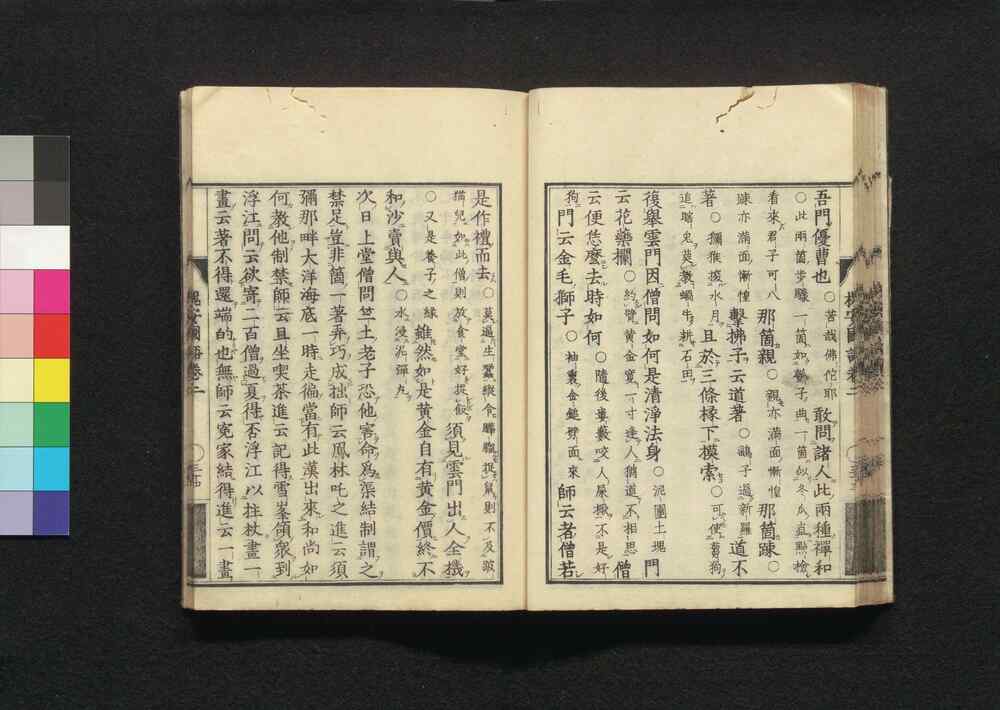 吾門優曹也○苦哉佛佗耶敢問諸人此兩種禪和
○此兩箇歩驟一箇如數子曲一箇似冬瓜直點檢
看來君子可八那箇親○親亦滿面慚惶那箇踈○
踈亦滿面慚惶擊拂子云道著○鷂子過新羅道不
著○獼猴捉水月且於三條椽下摸索○可使蒭狗
追瞎兎莫敎蝸牛耕石田
復擧雲門因僧問如何是清淨法身○泥團土塊門
云花藥欄○約臂黄金寛一寸逢人猶道不相思僧
云便恁麼去時如何○隨後蔞藪咬人屎橛不是好
狗門云金毛獅子○袖裏金鎚劈面來師云者僧若
是作禮而去○莫逼生蠶縱食聯臘捉鼠則不及跛
猫兒如此僧則放食堂好捉飯須見雲門出人全機
○又是養子之縁雖然如是黄金自有黄金價終不
和沙賣與人○水浸泥彈丸
次日上堂僧問竺土老子恐他害命爲渠結制謂之
禁足豈非箇一著弄巧成拙師云鳳林吒之進云須
彌那畔大洋海底一時走徧當有此漢出來和尚如
何敎他制禁師云且坐喫茶進云記得雪峯領衆到
浮江問云欲寄二百僧過夏得否浮江以拄杖畫一
畫云著不得還端的也無師云寃家結得進云一畫